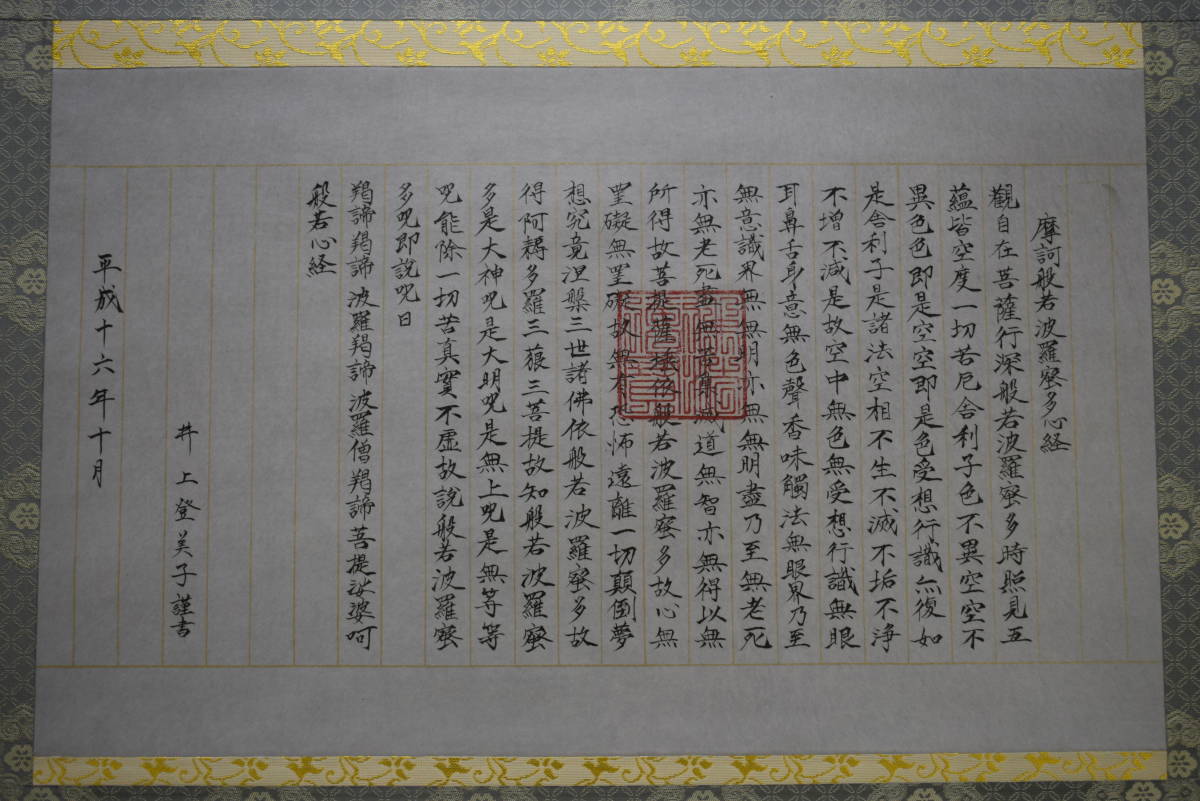 摩訶般若波羅蜜多心経
觀自在菩薩行深般若波羅蜜多時照見五
蘊皆空度一切苦厄舎利子色不異空空不
異色色即是空空即是色受想行識亦復如
是舎利子是諸法空相不生不滅不垢不浄
不増不減是故空中無色無受想行識無眼
耳鼻舌身意無色聲香味觸法無眼界乃至
無意識界無無明亦無無明盡乃至無老死
亦無老死盡無苦集滅道無智亦無得以無
所得故菩提薩埵依般若波羅蜜多故心無
罣礙無罣礙故無有恐怖遠離一切顛倒夢
想究竟涅槃三世諸佛依般若波羅蜜多故
得阿耨多羅三藐三菩提故知般若波羅蜜
多是大神呪是大明呪是無上呪是無等等
呪能除一切苦真實不虚故説般若波羅蜜
多呪即説呪曰
羯諦羯諦 波羅羯諦 波羅僧羯諦 菩提娑婆呵
般若心経
井上登美子謹書
平成十六年十月